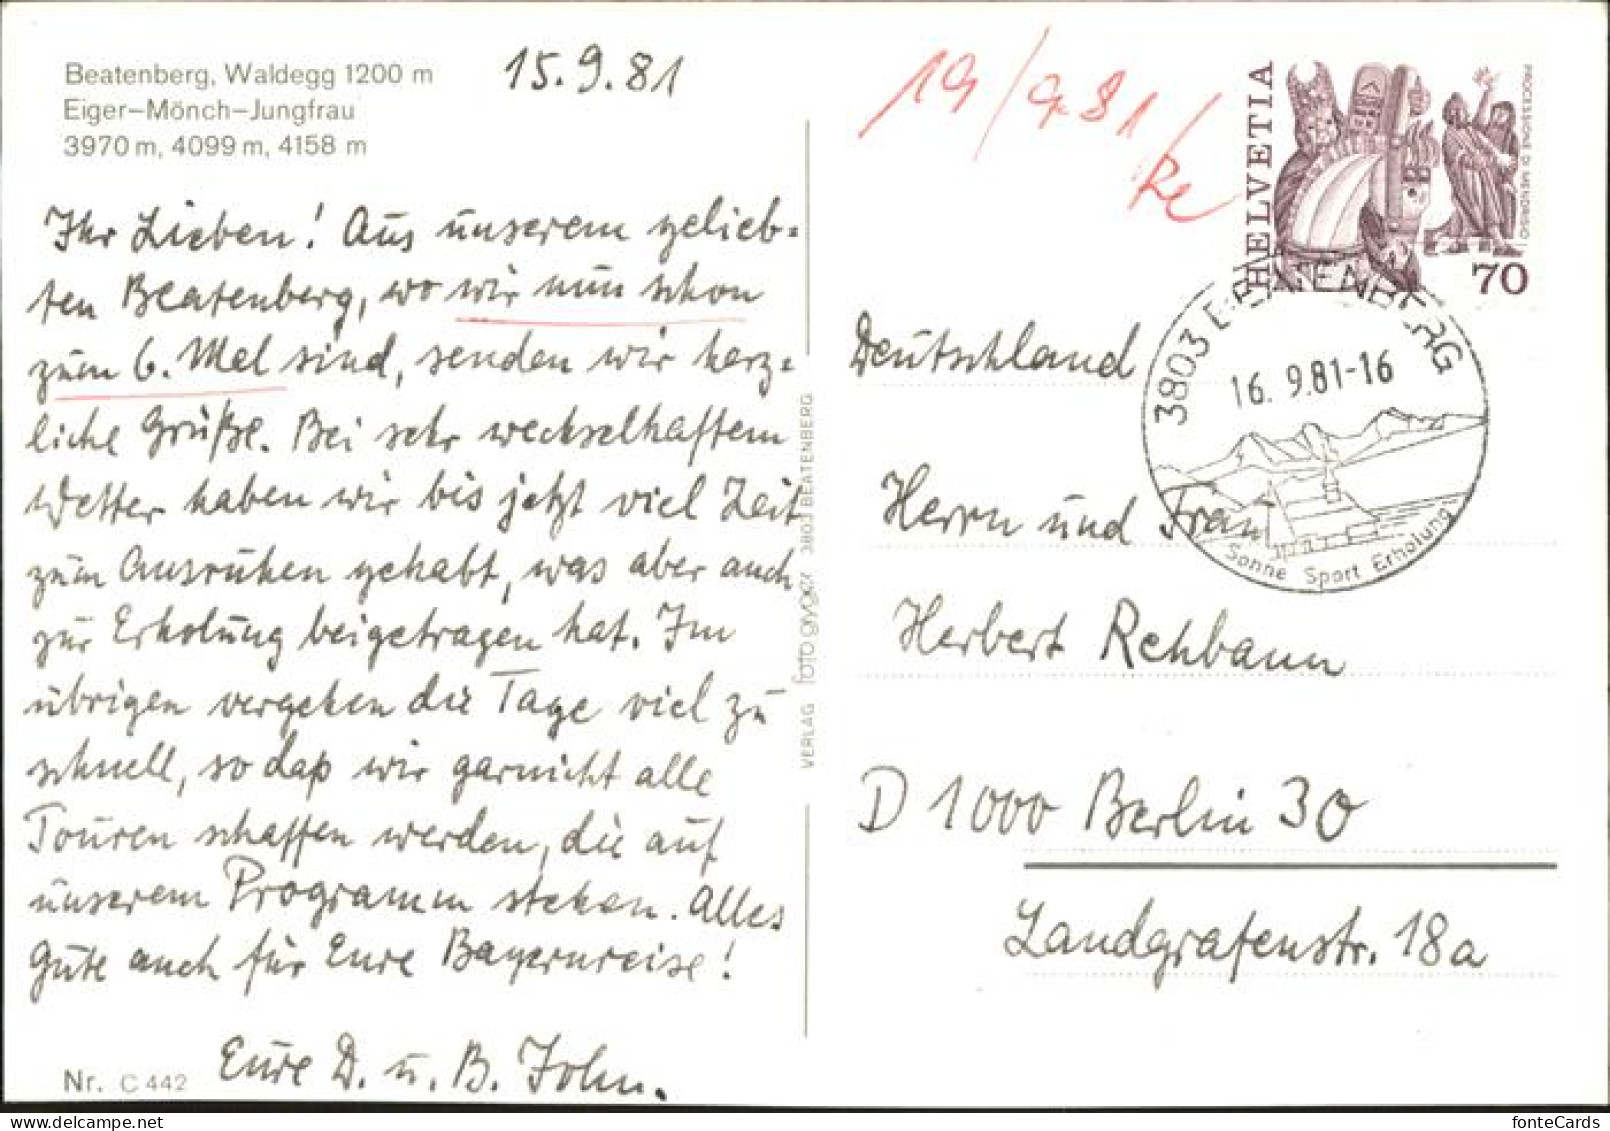 Beatenberg, Waldegg 1200 m
Eiger–Mönch–Jungfrau
3970 m, 4099 m, 4158 m
15.9.81
Ihr Lieben! Aus unserem gelieb-
ten Beatenberg, wo wir nun schon
zum 6. Mal sind, senden wir herz-
liche Grüße. Bei sehr wechselhaftem
Wetter haben wir bis jetzt viel Zeit
zum Ausruhen gehabt, was aber auch
zur Erholung beigetragen hat. Im
übrigen vergehen die Tage viel zu
schnell, so daß wir garnicht alle
Touren schaffen werden, die auf
unserem Programm stehen. Alles
Gute auch für Eure Bayernreise!
Eure D. u. B. John.
Nr. C 442
VERLAG foto gryger 3803 BEATENBERG
19/9.81/
Re
HELVETIA
PROCESSIONE DI MENDRISIO
70
3803 BEATENBERG
16. 9.81-16
Sonne Sport Erholung
Deutschland
Herrn und Frau
Herbert Rehbaum
D 1000 Berlin 30
Landgrafenstr. 18a
fonteCards
www.delcampe.net